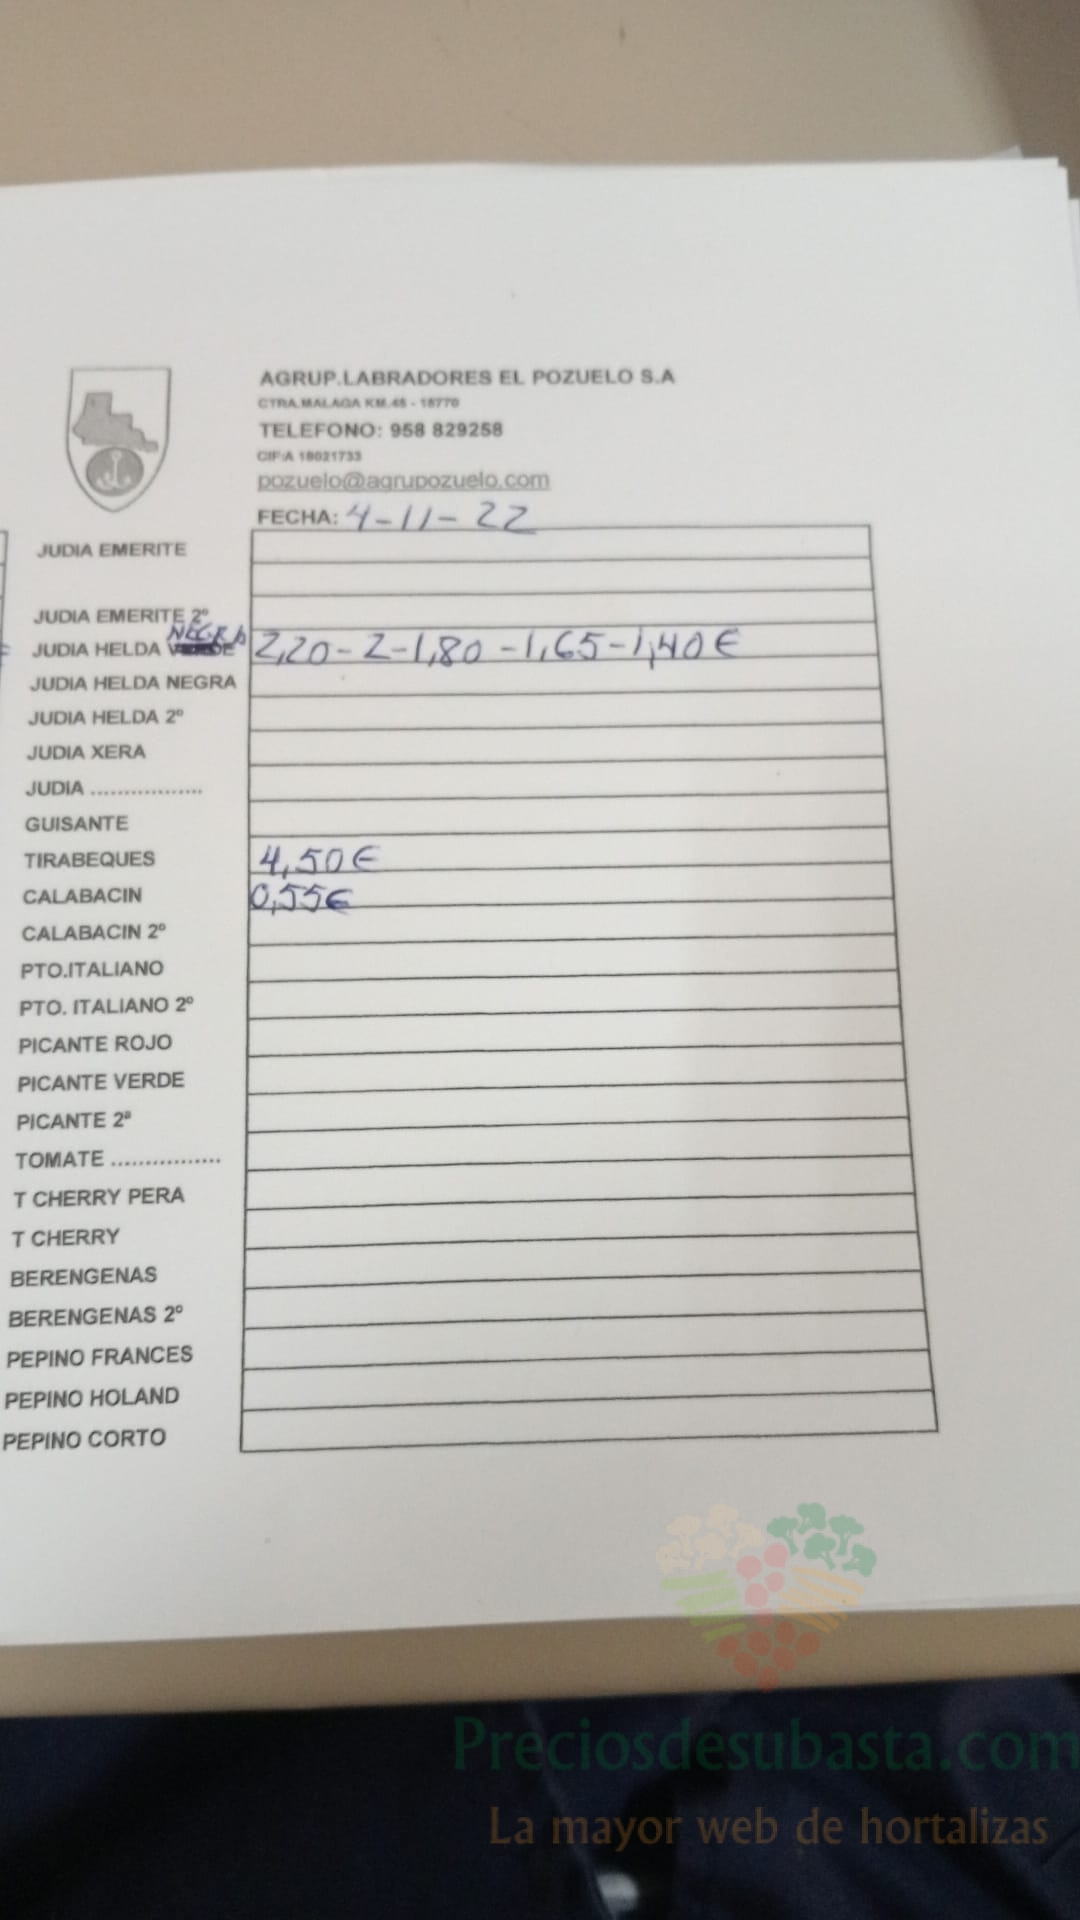 AGRUP.LABRADORES EL POZUELO S.A
CTRA.MALAGA KM.45 - 18770
TELEFONO: 958 829258
CIF:A 18021733
pozuelo@agrupozuelo.com
FECHA: 4-11-22
JUDIA EMERITE
JUDIA EMERITE 2º
JUDIA HELDA NEGRA 2,20-2-1,80-1,65-1,40€
JUDIA HELDA NEGRA
JUDIA HELDA 2º
JUDIA XERA
JUDIA .................
GUISANTE
TIRABEQUES 4,50€
CALABACIN 0,55€
CALABACIN 2º
PTO.ITALIANO
PTO. ITALIANO 2º
PICANTE ROJO
PICANTE VERDE
PICANTE 2ª
TOMATE ................
T CHERRY PERA
T CHERRY
BERENGENAS
BERENGENAS 2º
PEPINO FRANCES
PEPINO HOLAND
PEPINO CORTO
Preciosdesubasta.com
La mayor web de hortalizas